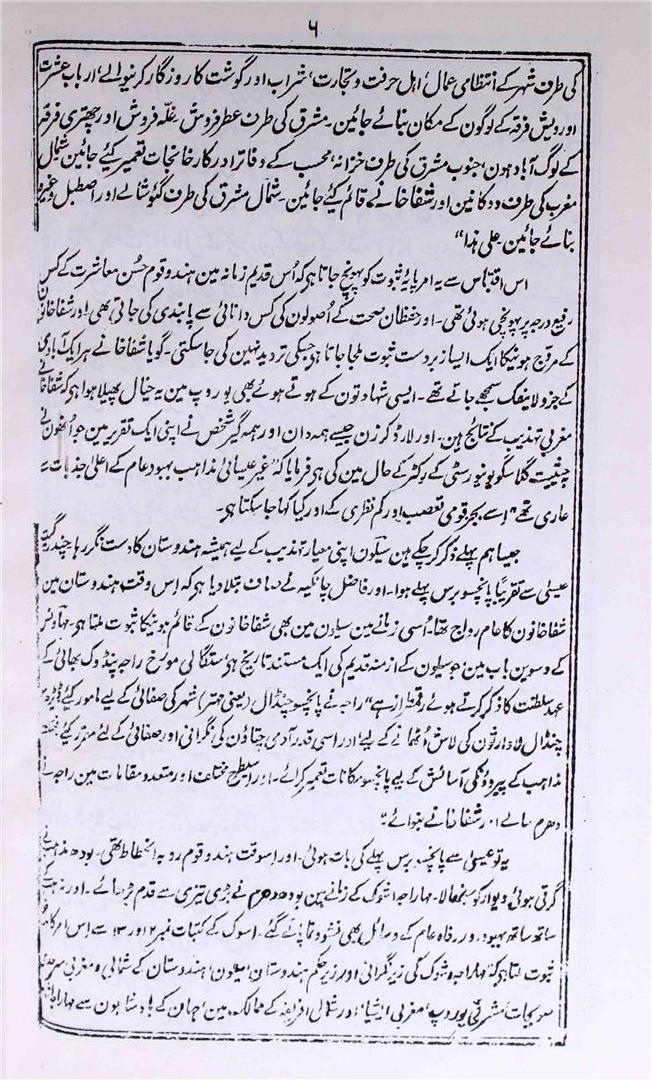 ۶
کی طرف شہر کے انتظامی عمال، اہل حرفت و تجارت، شراب اور گوشت کا روزگار کرنیوالے، ارباب عشرت
اور ویش فرقہ کے لوگون کے مکان بنائے جائین۔ مشرق کی طرف عطر فروش، غلّہ فروش اور چھتری فرقہ
کے لوگ آباد ہون، جنوب مشرق کی طرف خزانہ، محسب کے دفاتر اور کارخانجات تعمیر کیے جائین شمال
مغرب کی طرف دوکانین اور شفاخانے قائم کیے جائین۔ شمال مشرق کی طرف گئوشالے اور اصطبل وغیرہ
بنائے جائین علی ہذا"
اس اقتباس سے یہ امر پایۂ ثبوت کو پہونچ جاتا ہے کہ اُس قدیم زمانہ مین ہندو قوم حُسن معاشرت کے کس
رفیع درجہ پر پہونچی ہوئی تھی۔ اور حفظان صحت کے اُصولون کی کس دانائی سے پابندی کی جاتی تھی اور شفاخانون
کے مروّج ہونیکا ایک ایسا زبردست ثبوت ملجاتا ہی جسکی تردید نہین کی جاسکتی۔ گویا شفاخانے ہر ایک آبادی
کے جزو لاینفک سمجھے جاتے تھے۔ ایسی شہادتون کے ہوتے ہوئے بھی یوروپ مین یہ خیال پھیلا ہوا ہی کہ شفاخانے
مغربی تہذیب کے نتائج ہین۔ اور لارڈ کرزن جیسے ہمہ دان اور ہمہ گیر شخص نے اپنی ایک تقریر مین جو انھون نے
بحیثیت گلاسگو یونیورسٹی کے رکٹر کے حال مین کی ہی فرمایا کہ "غیر عیسائی مذاہب بہبود عام کے اعلیٰ جذبات سے
عاری تھے" اِسے بجز قومی تعصب اور کم نظری کے اور کیا کہا جاسکتا ہی۔
جیسا ہم پہلے ذکر کر چکے ہین سیلون اپنی معیار تہذیب کے لیے ہمیشہ ہندوستان کا دست نگر رہا چندرگپت
عیسٰی سے تقریباً پانچسو برس پہلے ہوا۔ اور فاضل چانکیہ نے صاف بتلا دیا ہی کہ اِس وقت ہندوستان مین
شفاخانون کا عام رواج تھا۔ اُسی زمانے مین سیلون مین بھی شفاخانون کے قائم ہونیکا ثبوت ملتا ہی۔ مہاونش
کے دسوین باب مین، جو سیلون کے ازمنہ قدیم کی ایک مستند تاریخ ہی، سنگالی مورخ راجہ پنڈوک بھائی کے
عہد سلطنت کا ذکر کرتے ہوئے رقمطراز ہے "راجہ نے پانچسو چنڈال (یعنی مہتر) شہر کی صفائی کے لیے مامور کیے
چنڈال لاوارثون کی لاش اُٹھانے کے لیے اور اسی قدر آدمی چتاؤن کی نگرانی اور صفائی کے لئے مقرر کیے مختلف
مذاہب کے پیروؤنکی آسائش کے لیے پانچسو مکانات تعمیر کرائے۔ اور اسیطرح مختلف اور متعدد مقامات مین راجہ نے
دھرم سالے اور شفاخانے بنوائے"
یہ تو عیسٰی سے پانچسو برس پہلے کی بات ہوئی۔ اور اسوقت ہندو قوم رو بہ انحطاط تھی۔ بودھ مذہب نے
گرتی ہوئی دیوار کو سنبھالا۔ مہاراجہ اشوک کے زمانے مین بودھ دھرم نے بڑی تیزی سے قدم بڑھائے۔ اور
ساتھ ساتھ بہبود اور رفاہ عام کے وسائل بھی نشوونما پائے گئے۔ اسوک کے کتبات نمبر ۲ اور ۱۳ سے اِس امر کا
ثبوت ملتا ہی کہ مہاراجہ اشوک کی زیر نگرانی اور زیر حکم ہندوستان، سیلون، ہندوستان کے شمالی و مغربی سرحدی
صوبجات، مشرقی یوروپ، مغربی ایشیا، اور شمال افریقہ کے ممالک مین، جہان کے بادشاہون سے مہاراجہ